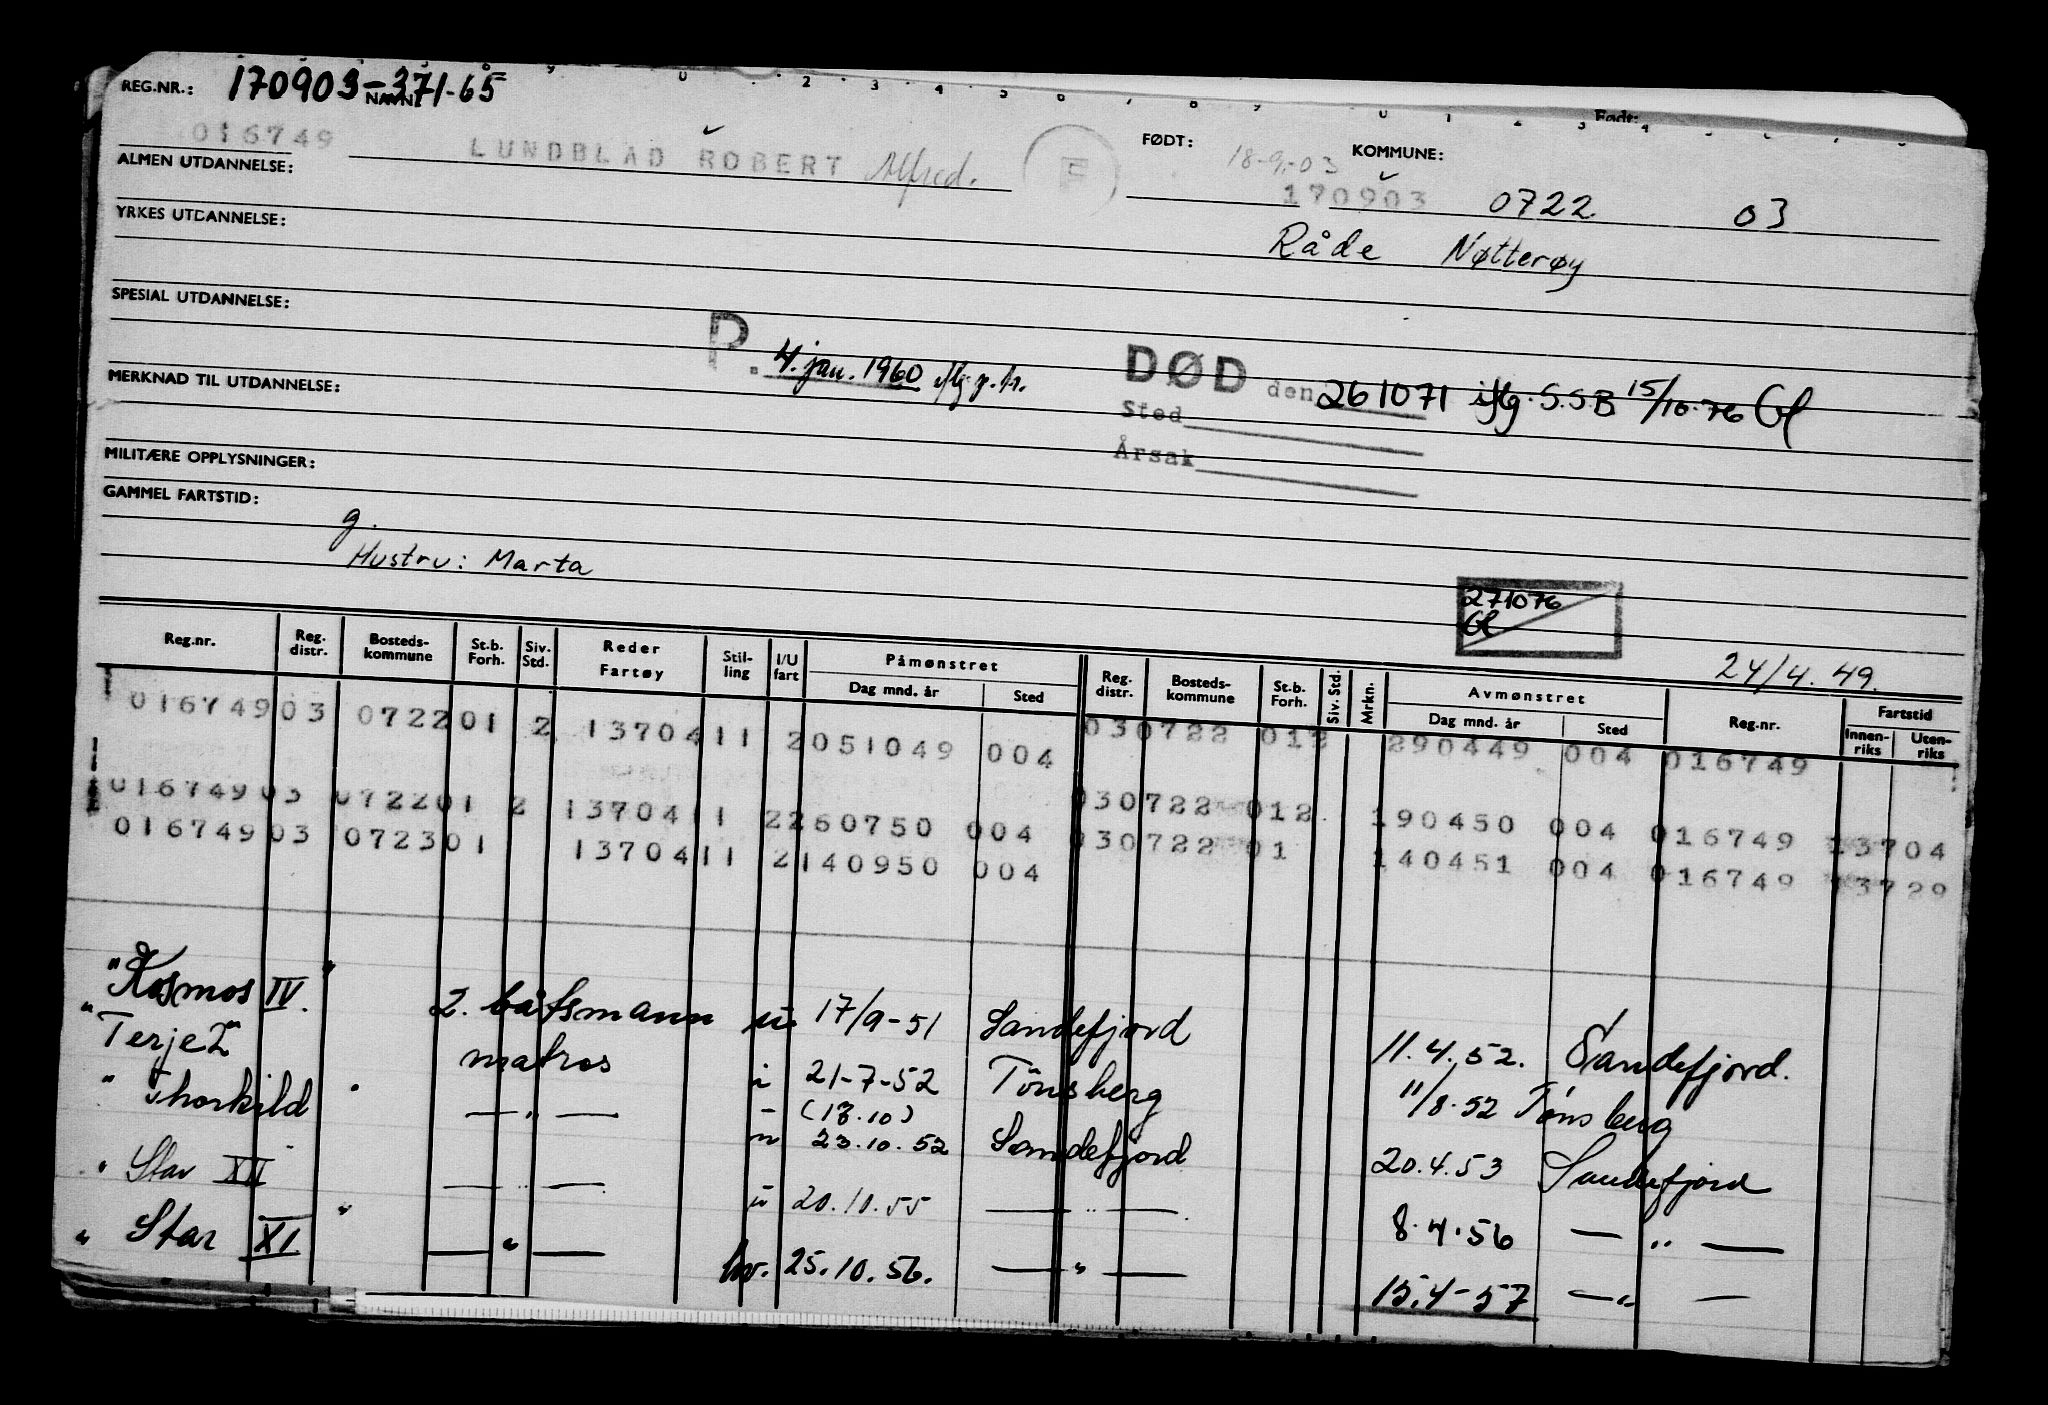 REG.NR.: 170903-371-65 NAVN:
Født:
016749 LUNDBLAD ROBERT Alfred. F FØDT: 18-9-03 170903 KOMMUNE: 0722 03
ALMEN UTDANNELSE:
YRKES UTDANNELSE: Råde Nøtterøy
SPESIAL UTDANNELSE:
P. 4. jan. 1960 iflg p.tr. DØD den 261071 iflg. S.S.B 15/10-76
MERKNAD TIL UTDANNELSE:
Sted
Årsak
MILITÆRE OPPLYSNINGER:
GAMMEL FARTSTID:
g.
Hustru: Marta
271076
24/4.49.
Reg.nr. Reg. distr. Bosteds-kommune St.b. Forh. Siv. Std. Reder Fartøy Stil-ling I/U fart Påmønstret Dag mnd. år Sted Reg. distr. Bosteds-kommune St.b. Forh. Siv. Std. Mrkn. Avmønstret Dag mnd. år Sted Reg.nr. Fartstid Innen-riks Uten-riks
016749 03 0722 01 2 13704 11 2 051049 004 03 0722 01 2 290449 004 016749
016749 03 0722 01 2 13704 11 2 260750 004 03 0722 01 2 190450 004 016749 13704
016749 03 0723 01 13704 11 2 140950 004 03 0722 01 140451 004 016749 13729
"Kosmos IV." 2. båtsmann u. 17/9-51 Sandefjord 11.4.52. Sandefjord.
"Terje 2" matros i 21-7-52 Tönsberg 11/8.52 Tönsberg
" Thorkild " — " — - (13.10)
u 23.10.52 Sandefjord 20.4.53 Sandefjord
" Star XII — " — u 20.10.55 — " — 8.4.56 — " —
" Star XI " — " — hv. 25.10.56. — " — 15.4-57 — " —